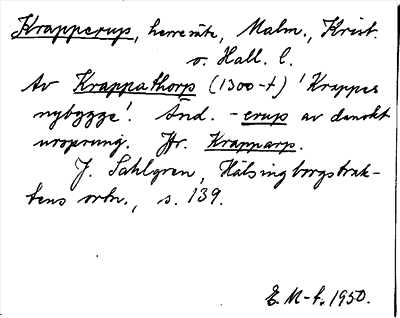 Krapperup, herresäte, Malm., Krist.
o. Hall. l.
Av Krappathorp (1300-t) 'Krappes
nybygge'. Änd. -erup av danskt
ursprung. Jfr. Krapparp.
J. Sahlgren, Hälsingborgstrak-
tens ortn., s. 139.
E. M-t. 1950.